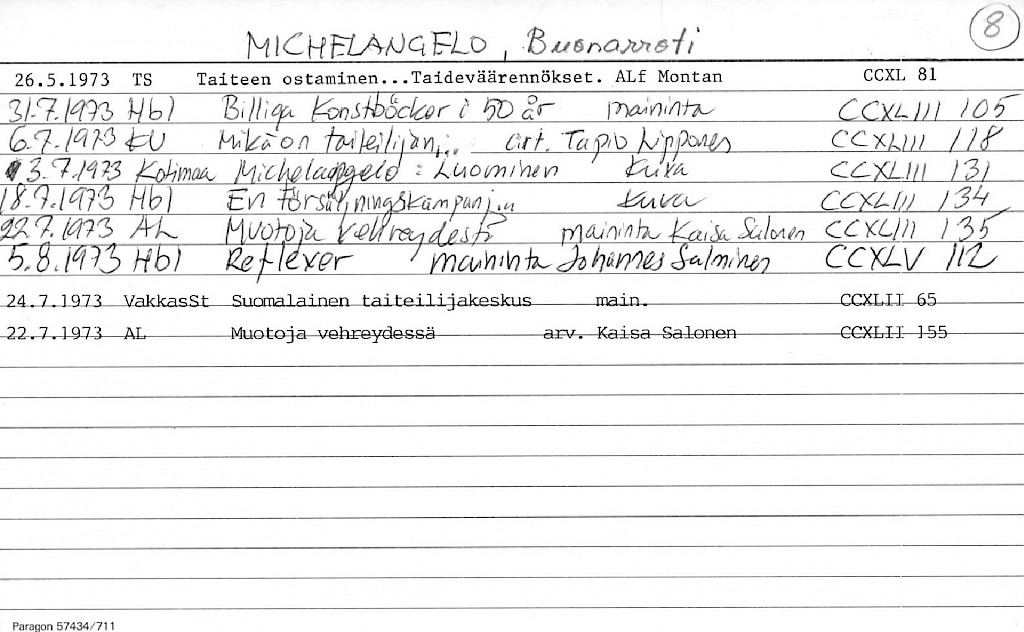 8
MICHELANGELO, Buonarroti
26.5.1973 TS Taiteen ostaminen...Taideväärennökset. ALf Montan CCXL 81
31.7.1973 Hbl Billiga Konstböcker i 50 år maininta CCXLIII 105
6.7.1973 KU Mikä on taiteilijan... art. Tapio Lipponen CCXLIII 118
3.7.1973 Kotimaa Michelangelo: Luominen kuva CCXLIII 131
18.7.1973 Hbl En försäljningskampanj kuva CCXLIII 134
22.7.1973 AL Muotoja vehreydestä maininta Kaisa Salonen CCXLIII 135
5.8.1973 Hbl Reflexer maininta Johannes Salminen CCXLV 112
24.7.1973 VakkasSt Suomalainen taiteilijakeskus main. CCXLII 65
22.7.1973 AL Muotoja vehreydessä arv. Kaisa Salonen CCXLII 155
Paragon 57434/711